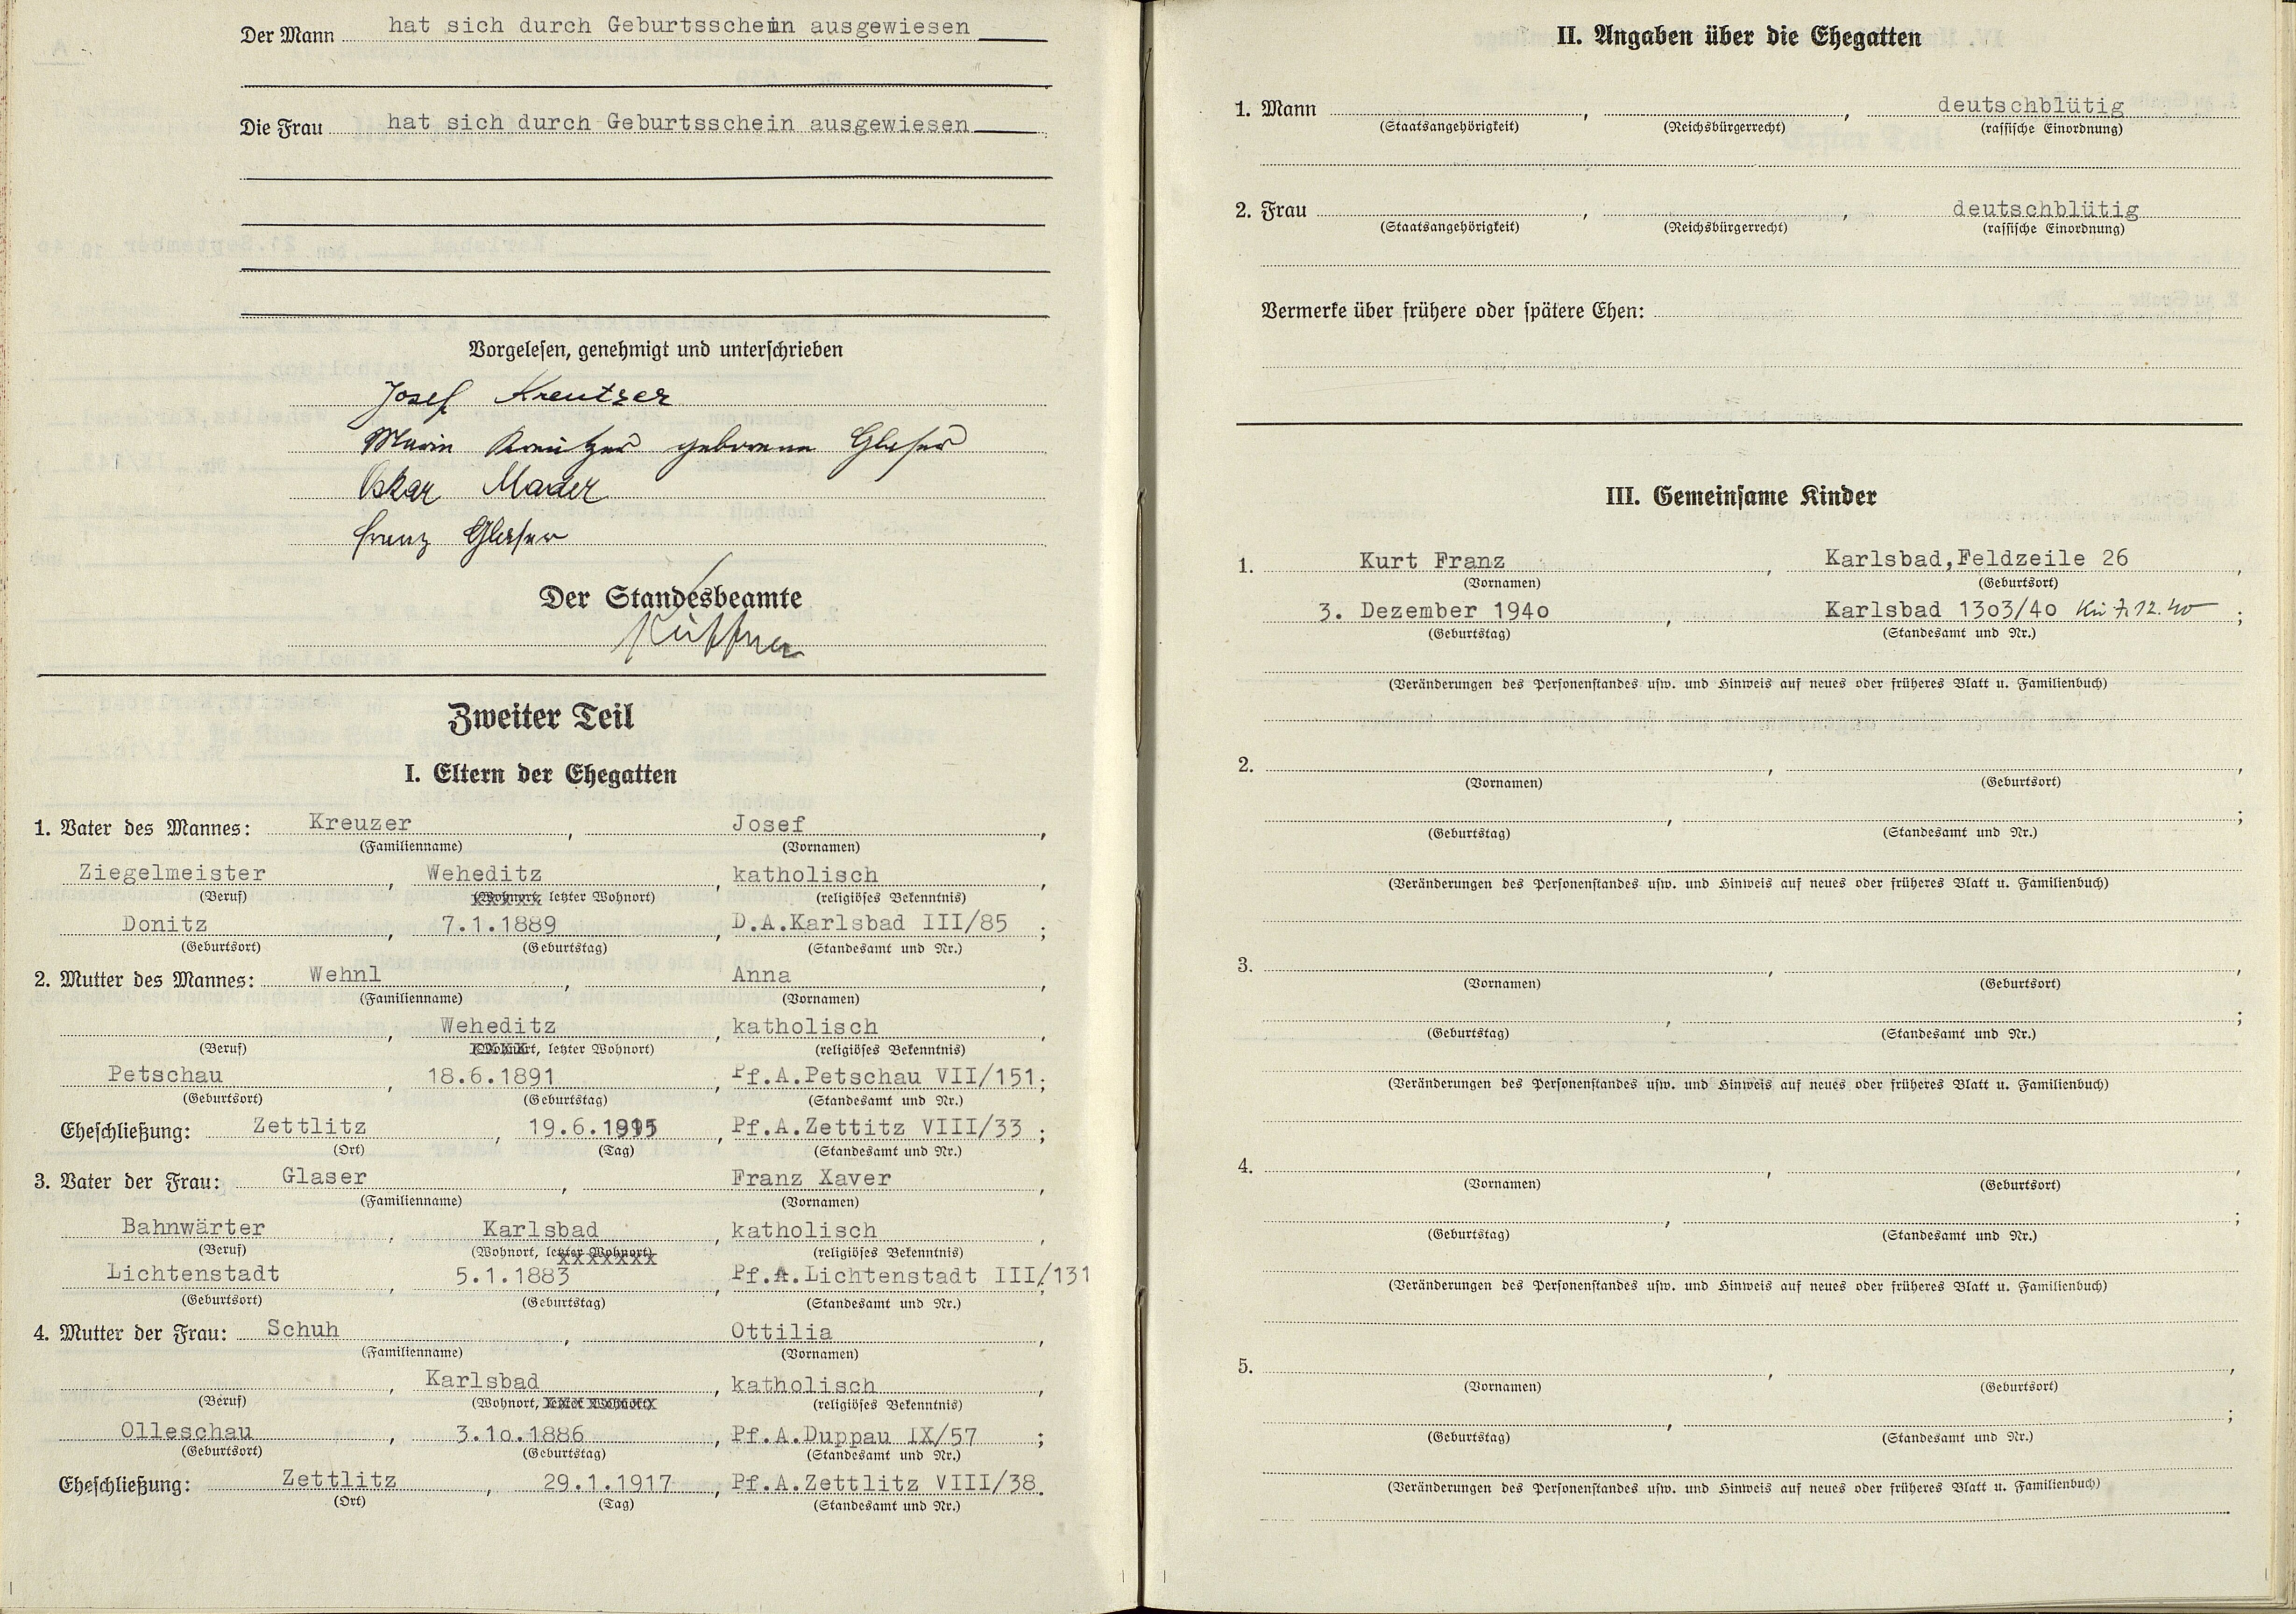 Der Mann hat sich durch Geburtsschein ausgewiesen
Die Frau hat sich durch Geburtsschein ausgewiesen
Vorgelesen, genehmigt und unterschrieben
Josef Kreutzer
Maria Kreutzer geborene Glaser
Oskar Mader
Franz Glaser
Der Standesbeamte
Zweiter Teil
I. Eltern der Ehegatten
1. Vater des Mannes: Kreuzer, Josef,
(Familienname) (Vornamen)
Ziegelmeister, Weheditz, katholisch,
(Beruf) (Wohnort, letzter Wohnort) (religiöses Bekenntnis)
Donitz, 7.1.1889, D.A.Karlsbad III/85;
(Geburtsort) (Geburtstag) (Standesamt und Nr.)
2. Mutter des Mannes: Wehnl, Anna,
(Familienname) (Vornamen)
, Weheditz, katholisch,
(Beruf) (Wohnort, letzter Wohnort) (religiöses Bekenntnis)
Petschau, 18.6.1891, Pf.A.Petschau VII/151;
(Geburtsort) (Geburtstag) (Standesamt und Nr.)
Eheschließung: Zettlitz, 19.6.1915, Pf.A.Zettitz VIII/33;
(Ort) (Tag) (Standesamt und Nr.)
3. Vater der Frau: Glaser, Franz Xaver,
(Familienname) (Vornamen)
Bahnwärter, Karlsbad, katholisch,
(Beruf) (Wohnort, letzter Wohnort) (religiöses Bekenntnis)
Lichtenstadt, 5.1.1883, Pf.A.Lichtenstadt III/131;
(Geburtsort) (Geburtstag) (Standesamt und Nr.)
4. Mutter der Frau: Schuh, Ottilia,
(Familienname) (Vornamen)
, Karlsbad, katholisch,
(Beruf) (Wohnort, letzter Wohnort) (religiöses Bekenntnis)
Olleschau, 3.10.1886, Pf.A.Duppau IX/57;
(Geburtsort) (Geburtstag) (Standesamt und Nr.)
Eheschließung: Zettlitz, 29.1.1917, Pf.A.Zettlitz VIII/38.
(Ort) (Tag) (Standesamt und Nr.)
II. Angaben über die Ehegatten
1. Mann , , deutschblütig
(Staatsangehörigkeit) (Reichsbürgerrecht) (rassische Einordnung)
2. Frau , , deutschblütig
(Staatsangehörigkeit) (Reichsbürgerrecht) (rassische Einordnung)
Vermerke über frühere oder spätere Ehen:
III. Gemeinsame Kinder
1. Kurt Franz, Karlsbad,Feldzeile 26,
(Vornamen) (Geburtsort)
3. Dezember 1940, Karlsbad 1303/40 12.40;
(Geburtstag) (Standesamt und Nr.)
(Veränderungen des Personenstandes usw. und Hinweis auf neues oder früheres Blatt u. Familienbuch)
2. , ,
(Vornamen) (Geburtsort)
, ;
(Geburtstag) (Standesamt und Nr.)
(Veränderungen des Personenstandes usw. und Hinweis auf neues oder früheres Blatt u. Familienbuch)
3. , ,
(Vornamen) (Geburtsort)
, ;
(Geburtstag) (Standesamt und Nr.)
(Veränderungen des Personenstandes usw. und Hinweis auf neues oder früheres Blatt u. Familienbuch)
4. , ,
(Vornamen) (Geburtsort)
, ;
(Geburtstag) (Standesamt und Nr.)
(Veränderungen des Personenstandes usw. und Hinweis auf neues oder früheres Blatt u. Familienbuch)
5. , ,
(Vornamen) (Geburtsort)
, ;
(Geburtstag) (Standesamt und Nr.)
(Veränderungen des Personenstandes usw. und Hinweis auf neues oder früheres Blatt u. Familienbuch)